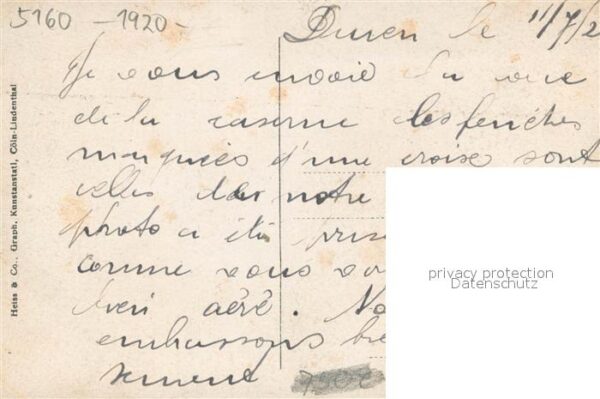 5160 -1920-
Duren le 11/7/2
Je vous envoie la vue
de la caserne les fenêtres
marquées d'une croise sont
celles de notre
photo a été pris
comme vous
bien aéré. No
embrassons
sement
Heiss & Co., Graph. Kunstanstalt, Cöln-Lindenthal
privacy protection
Datenschutz